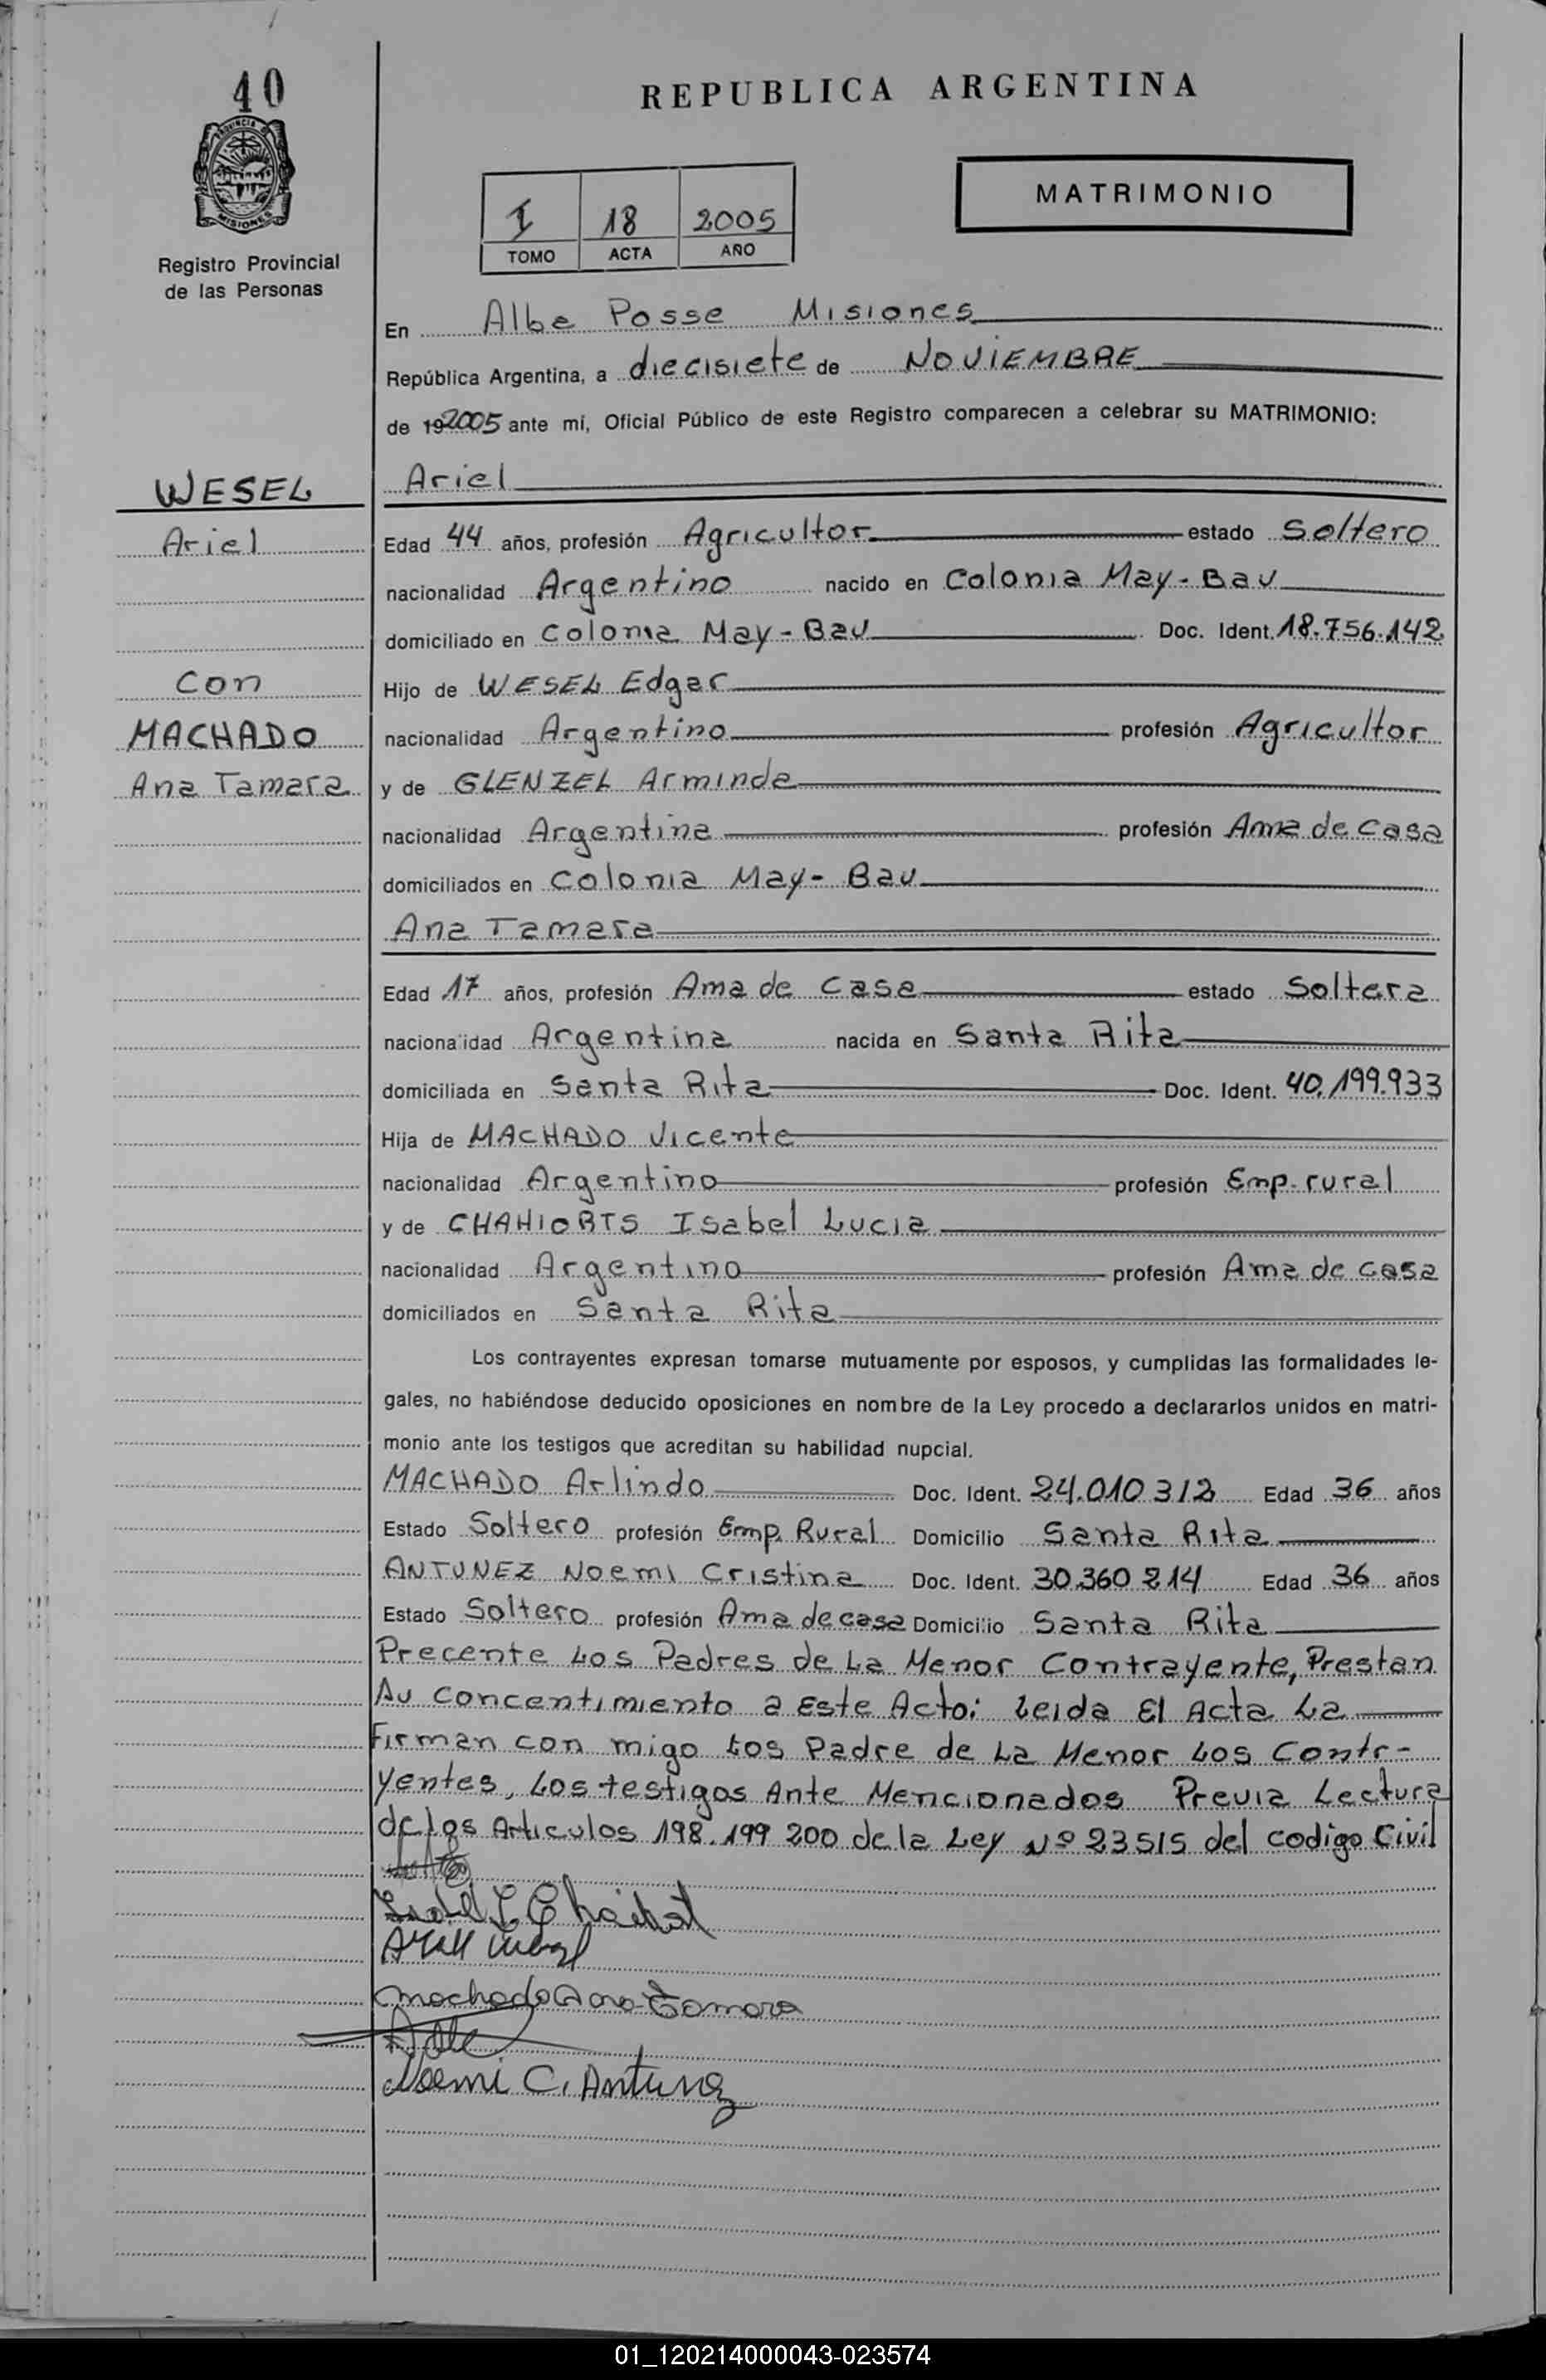 40
PROVINCIA DE
MISIONES
Registro Provincial
de las Personas
REPUBLICA ARGENTINA
MATRIMONIO
I 18 2005
TOMO ACTA AÑO
En Alba Posse Misiones
República Argentina, a diecisiete de NOVIEMBRE
de 192005 ante mí, Oficial Público de este Registro comparecen a celebrar su MATRIMONIO:
WESEL
Ariel
con
MACHADO
Ana Tamara
Ariel
Edad 44 años, profesión Agricultor estado Soltero
nacionalidad Argentino nacido en Colonia May-Bau
domiciliado en Colonia May-Bau Doc. Ident. 18.756.142
Hijo de WESEL Edgar
nacionalidad Argentino profesión Agricultor
y de GLENZEL Arminda
nacionalidad Argentina profesión Ama de casa
domiciliados en Colonia May-Bau
Ana Tamara
Edad 17 años, profesión Ama de Casa estado Soltera
naciona idad Argentina nacida en Santa Rita
domiciliada en Santa Rita Doc. Ident. 40.199.933
Hija de MACHADO Vicente
nacionalidad Argentino profesión Emp. rural
y de CHAHIORTS Isabel Lucia
nacionalidad Argentino profesión Ama de casa
domiciliados en Santa Rita
Los contrayentes expresan tomarse mutuamente por esposos, y cumplidas las formalidades le-
gales, no habiéndose deducido oposiciones en nombre de la Ley procedo a declararlos unidos en matri-
monio ante los testigos que acreditan su habilidad nupcial.
MACHADO Arlindo Doc. Ident. 24.010.312 Edad 36 años
Estado Soltero profesión Emp. Rural Domicilio Santa Rita
ANTUNEZ Noemi Cristina Doc. Ident. 30.360.214 Edad 36 años
Estado Soltero profesión Ama de casa Domicilio Santa Rita
Precente Los Padres de La Menor Contrayente, Prestan
Su concentimiento a Este Acto: Leida El Acta La
Firman con migo Los Padre de La Menor Los Contr-
yentes, Los testigos Ante Mencionados Previa Lectura
de los Articulos 198.199 200 de la Ley Nº 23515 del codigo Civil
Machado Ana Tamara
Noemi C. Antunez
01_120214000043-023574